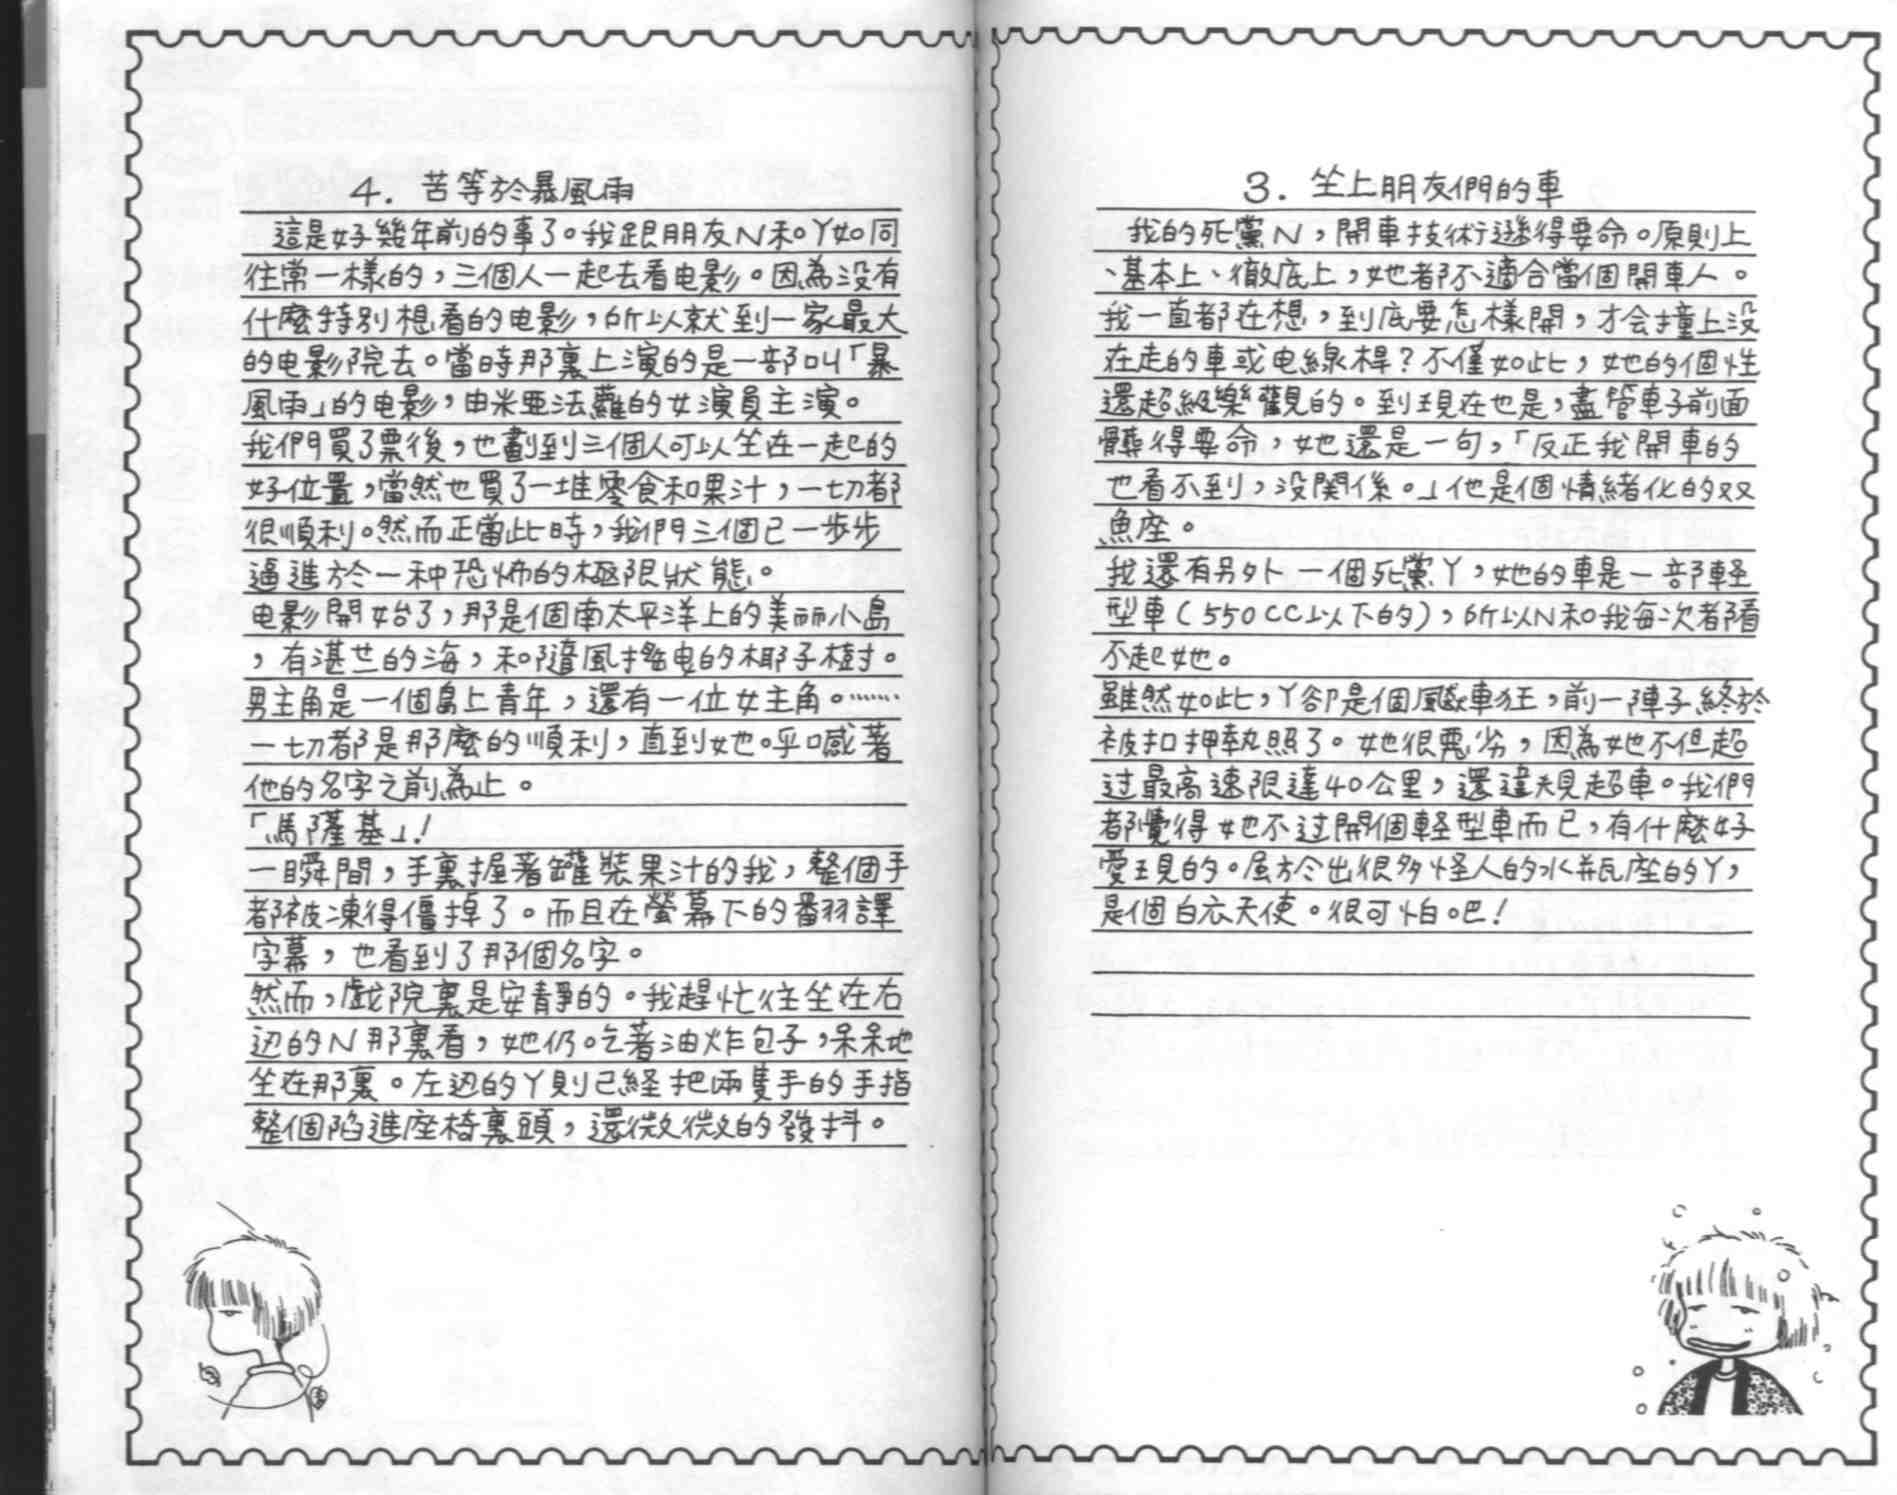 3. 坐上朋友們的車
我的死黨N，開車技術遜得要命。原則上
、基本上、徹底上，她都不適合當個開車人。
我一直都在想，到底要怎樣開，才会撞上没
在走的車或电線桿？不僅如此，她的個性
還超級樂觀的。到現在也是，儘管車子前面
髒得要命，她還是一句，「反正我開車的
也看不到，没関係。」他是個情緒化的双
魚座。
我還有另外一個死黨丫，她的車是一部軽
型車(550CC以下的)，所以N和我每次都看
不起她。
雖然如此，丫卻是個飆車狂，前一陣子終於
被扣押執照了。她很惡劣，因為她不但超
过最高速限達40公里，還違規超車。我們
都覺得她不过開個軽型車而已，有什麼好
愛現的。屬於出很多怪人的水瓶座的丫，
是個白衣天使。很可怕吧！
4. 苦等於暴風雨
這是好幾年前的事了。我跟朋友N和丫如同
往常一樣的，三個人一起去看电影。因為没有
什麼特別想看的电影，所以就到一家最大
的电影院去。當時那裏上演的是一部叫「暴
風雨」的电影，由米亞法蘿的女演員主演。
我們買了票後，也劃到三個人可以坐在一起的
好位置，當然也買了一堆零食和果汁，一切都
很順利。然而正當此時，我們三個已一步步
逼進於一种恐怖的極限狀態。
电影開始了，那是個南太平洋上的美丽小島
，有湛藍的海，和隨風搖曳的椰子樹。
男主角是一個島上青年，還有一位女主角。……
一切都是那麼的順利，直到她呼喊著
他的名字之前為止。
「馬隆基」！
一瞬間，手裏握著罐裝果汁的我，整個手
都被凍得僵掉了。而且在螢幕下的翻譯
字幕，也看到了那個名字。
然而，戲院裏是安靜的。我趕忙往坐在右
边的N那裏看，她仍吃著油炸包子，呆呆地
坐在那裏。左边的丫則已経把兩隻手的手指
整個陷進座椅裏頭，還微微的發抖。